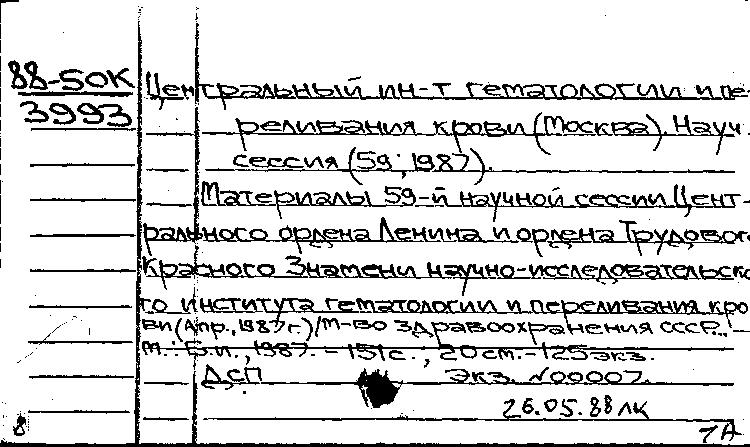 88-50К Центральный ин-т гематологии и пе-
3993 реливания крови (Москва). Науч.
сессия (59; 1987).
Материалы 59-й научной сессии Цент-
рального ордена Ленина и ордена Трудового
Красного Знамени научно-исследовательско-
го института гематологии и переливания кро
ви (Апр., 1987 г.) / М-во здравоохранения СССР. -
М.: Б.и., 1987. - 151 с.; 20 см. - 125 экз.
ДСП Экз. №00007.
26.05.88 ЛК
8 7А